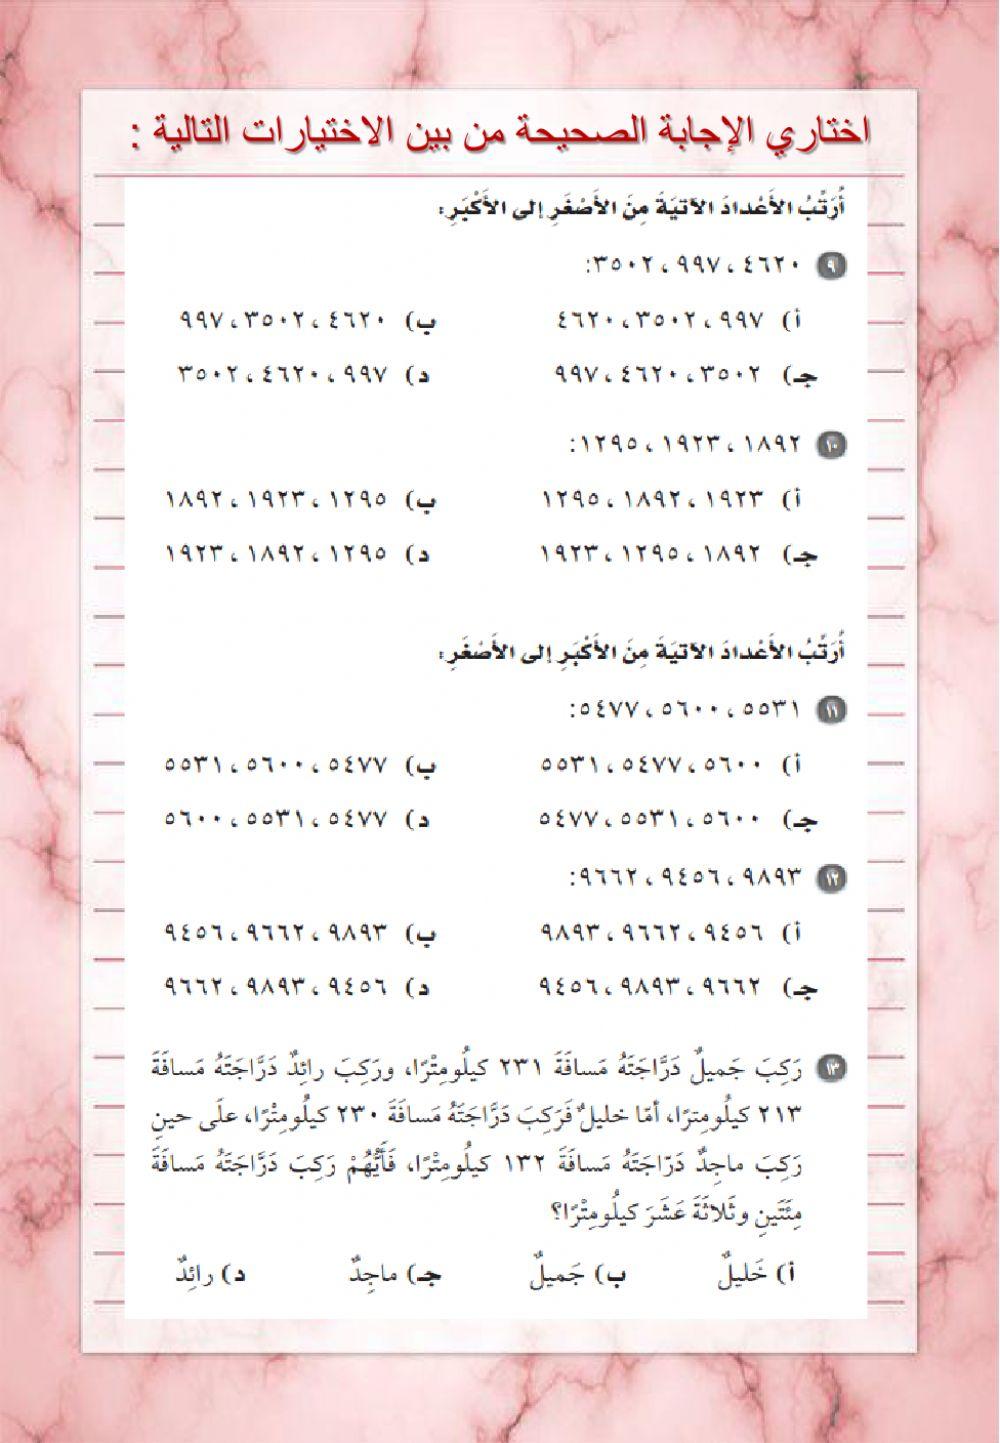 اختاري الإجابة الصحيحة من بين الاختيارات التالية :
أُرَتِّبُ الأَعْدادَ الآتيَةَ مِنَ الأَصْغَرِ إلى الأَكْبَرِ:
٩ ٤٦٢٠ ، ٩٩٧ ، ٣٥٠٢:
أ) ٩٩٧ ، ٣٥٠٢ ، ٤٦٢٠ ب) ٤٦٢٠ ، ٣٥٠٢ ، ٩٩٧
جـ) ٣٥٠٢ ، ٤٦٢٠ ، ٩٩٧ د) ٩٩٧ ، ٤٦٢٠ ، ٣٥٠٢
١٠ ١٨٩٢ ، ١٩٢٣ ، ١٢٩٥:
أ) ١٩٢٣ ، ١٨٩٢ ، ١٢٩٥ ب) ١٢٩٥ ، ١٩٢٣ ، ١٨٩٢
جـ) ١٨٩٢ ، ١٢٩٥ ، ١٩٢٣ د) ١٢٩٥ ، ١٨٩٢ ، ١٩٢٣
أُرَتِّبُ الأَعْدادَ الآتيَةَ مِنَ الأَكْبَرِ إلى الأَصْغَرِ:
١١ ٥٥٣١ ، ٥٦٠٠ ، ٥٤٧٧:
أ) ٥٦٠٠ ، ٥٤٧٧ ، ٥٥٣١ ب) ٥٤٧٧ ، ٥٦٠٠ ، ٥٥٣١
جـ) ٥٦٠٠ ، ٥٥٣١ ، ٥٤٧٧ د) ٥٤٧٧ ، ٥٥٣١ ، ٥٦٠٠
١٢ ٩٨٩٣ ، ٩٤٥٦ ، ٩٦٦٢:
أ) ٩٤٥٦ ، ٩٦٦٢ ، ٩٨٩٣ ب) ٩٨٩٣ ، ٩٦٦٢ ، ٩٤٥٦
جـ) ٩٦٦٢ ، ٩٨٩٣ ، ٩٤٥٦ د) ٩٤٥٦ ، ٩٨٩٣ ، ٩٦٦٢
١٣ رَكِبَ جَميلٌ دَرَّاجَتَهُ مَسافَةَ ٢٣١ كيلُومِتْرًا، ورَكِبَ رائِدٌ دَرَّاجَتَهُ مَسافَةَ
٢١٣ كيلُومِترًا، أمّا خليلٌ فَرَكِبَ دَرَّاجَتَهُ مَسافَةَ ٢٣٠ كيلُومِتْرًا، علَى حينِ
رَكِبَ ماجِدٌ دَرّاجَتَهُ مَسافَةَ ١٣٢ كيلُومِتْرًا، فَأَيُّهُمْ رَكِبَ دَرَّاجَتَهُ مَسافَةَ
مِئَتَينِ وثَلاثَةَ عَشَرَ كيلُومِتْرًا؟
أ) خَليلٌ ب) جَميلٌ جـ) ماجِدٌ د) رائِدٌ